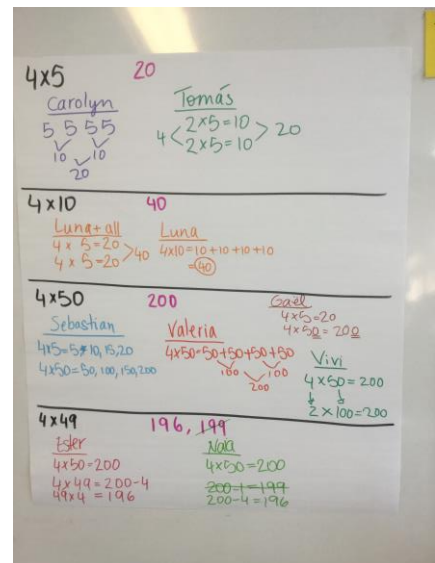 4x5 20
Carolyn
5 5 5 5
10 10
20
Tomás
4 < 2x5=10 > 20
2x5=10
4x10 40
Luna + all
4 x 5=20
4 x 5=20 >40
Luna
4x10=10+10+10+10
=40
4x50 200
Sebastian
4x5=5, 10, 15, 20
4x50=50, 100, 150, 200
Valeria
4x50=50+50+50+50
100 100
200
Gael
4x5=20
4x50=200
Vivi
4x50=200
2 x 100=200
4x49 196, 199
Ester
4x50=200
4x49=200-4
49x4=196
Nala
4x50=200
200-1=199
200-4=196